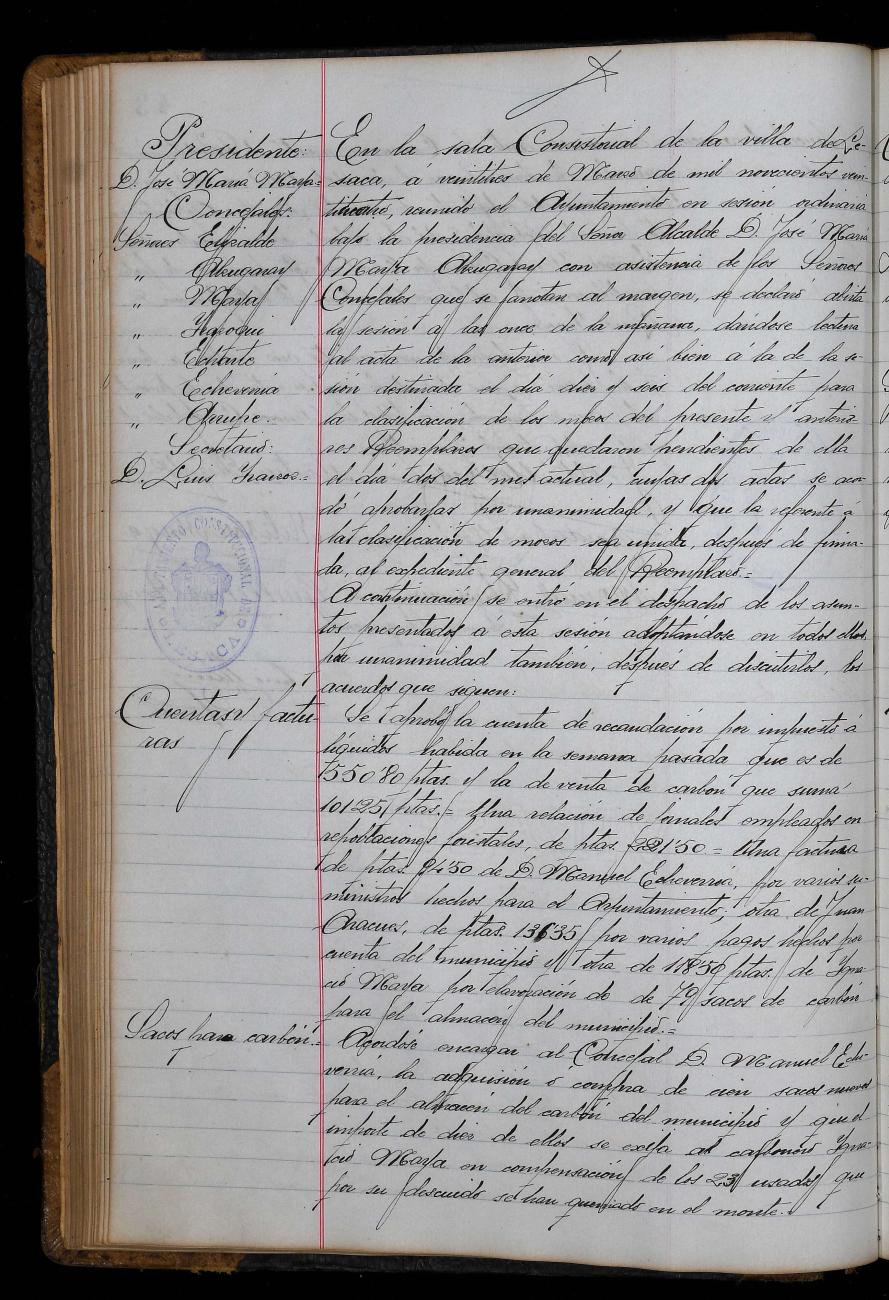 Presidente:
D. José María Marja=
Concejales:
Señores Elizalde
" Abeugaray
" Marja
" Irazoqui
" Echarte
" Echeverria
" Arrupe
Secretario:
D. Luis
AYUNTAMIENTO CONSTITUCIONAL DE
LESACA
En la sala Consistorial de la villa de Le-
saca, á veintitres de Marzo de mil novecientos vein-
ticuatro, reunido el Ayuntamiento en sesión ordinaria
bajo la presidencia del Señor Alcalde D. José María
Marja Abeugaray con asistencia de los Señores
Concejales que se anotan al margen, se declaró abierta
la sesión á las once de la mañana, dándose lectura
al acta de la anterior como así bien á la de la se-
sión destinada el día diez y seis del corriente para
la clasificación de los mozos del presente y anterio-
res Reemplazos que quedaron pendientes de ella
el día dos del mes actual, cuyas dos actas se acor-
dó aprobarlas por unanimidad, y que la referente á
la clasificación de mozos sea unida, después de firma-
da, al expediente general del Reemplazo.=
A continuación se entró en el despacho de los asun-
tos presentados á esta sesión adoptándose en todos ellos,
por unanimidad también, después de discutirlos, los
acuerdos que siguen:
Cuentas y factu-
ras
Se aprobó la cuenta de recaudación por impuesto á
líquidos habida en la semana pasada que es de
550'80 ptas. y la de venta de carbon que suma
101'25 ptas.= Una relación de jornales empleados en
repoblaciones forestales, de ptas. 221'50.= Una factura
de ptas. 94'50 de D. Manuel Echeverria, por varios su-
ministros hechos para el Ayuntamiento; otra de Juan
Aracues, de ptas. 136'35 por varios pagos hechos por
cuenta del municipio y otra de 118'50 ptas. de Igna-
cio Marja por elavoración de de 79 sacos de carbón
para el almacén del municipio.=
Sacos para carbón.=
Acordóse encargar al Concejal D. Manuel Eche-
verría, la adquisión ó compra de cien sacos nuevos
para el almacén del carbón del municipio y que el
importe de diez de ellos se exija al carbonero Igna-
cio Marja en compensación de los 23 usados que
por su descuido se han quemado en el monte.=